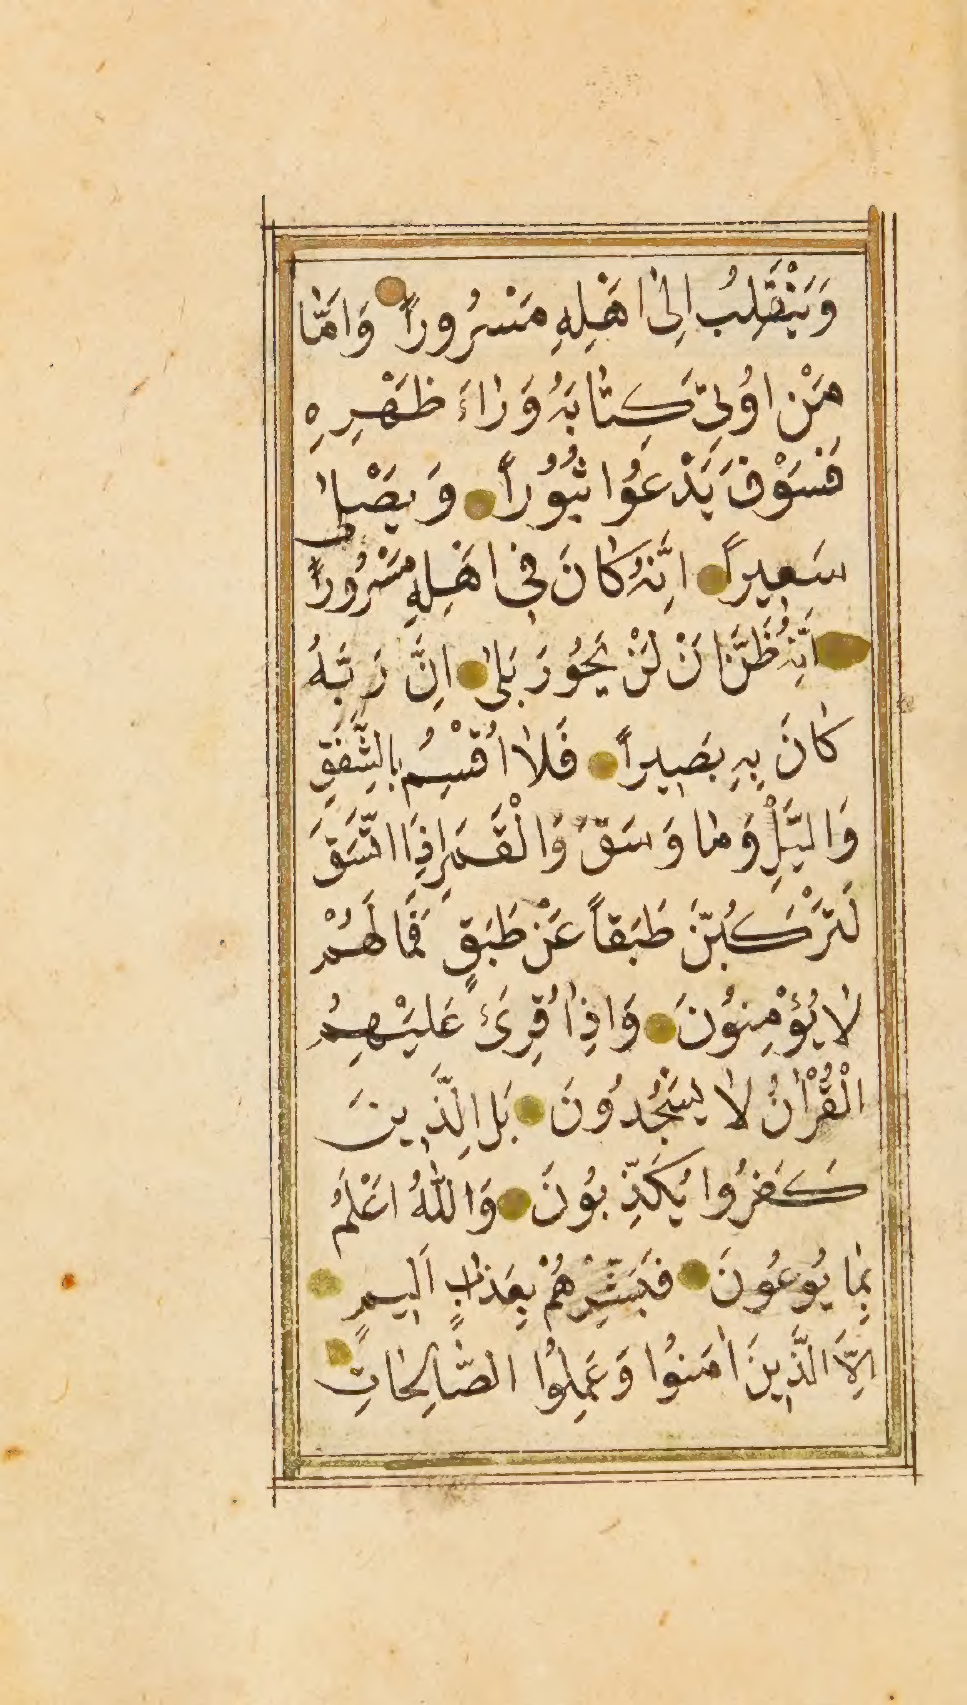 وَيَنْقَلِبُ اِلٰى اَهْلِهِ مَسْرُوراً وَاَمَّا
مَنْ اُوتِىَ كِتَابَهُ وَرَاءَ ظَهْرِهِ
فَسَوْفَ يَدْعُوا ثُبُوراً وَيَصْلٰى
سَعِيراً اِنَّهُ كَانَ فِى اَهْلِهِ مَسْرُوراً
اِنَّهُ ظَنَّ اَنْ لَنْ يَحُورَ بَلٰى اِنَّ رَبَّهُ
كَانَ بِهِ بَصِيراً فَلَا اُقْسِمُ بِالشَّفَقِ
وَالَّيْلِ وَمَا وَسَقَ وَالْقَمَرِ اِذَا اتَّسَقَ
لَتَرْكَبُنَّ طَبَقاً عَنْ طَبَقٍ فَمَا لَهُمْ
لَا يُؤْمِنُونَ وَاِذَا قُرِئَ عَلَيْهِمُ
الْقُرْاٰنُ لَا يَسْجُدُونَ بَلِ الَّذِينَ
كَفَرُوا يُكَذِّبُونَ وَاللّٰهُ اَعْلَمُ
بِمَا يُوعُونَ فَبَشِّرْهُمْ بِعَذَابٍ اَلِيمٍ
اِلَّا الَّذِينَ اٰمَنُوا وَعَمِلُوا الصَّالِحَاتِ